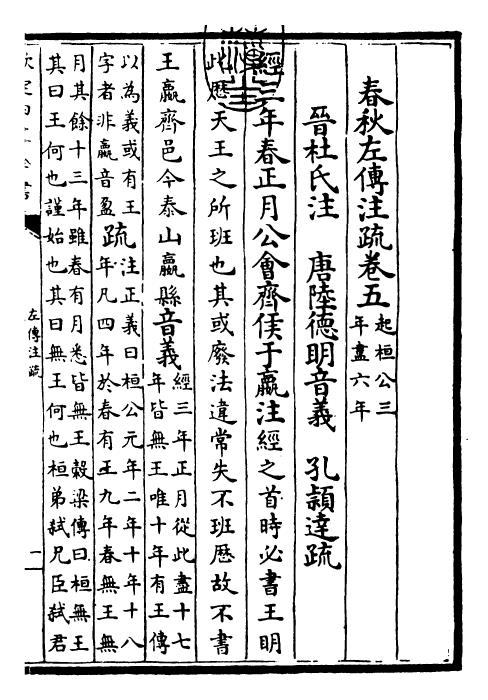 春秋左傳注疏卷五
起桓公三
年盡六年
晉杜氏注 唐陸德明音義 孔頴達疏
經三年春正月公會齊侯于嬴注經之首時必書王明
此厯天王之所班也其或廢法違常失不班厯故不書
王嬴齊邑今泰山嬴縣音義
經三年正月從此盡十七
年皆無王唯十年有王傳
以為義或有王
字者非嬴音盈
疏
注正義曰桓公元年二年十年十八
年凡四年於春有王九年春無王無
月其餘十三年雖春有月悉皆無王穀梁傳曰桓無王
其曰王何也謹始也其曰無王何也桓弟弑兄臣弑君
左傳注疏
一